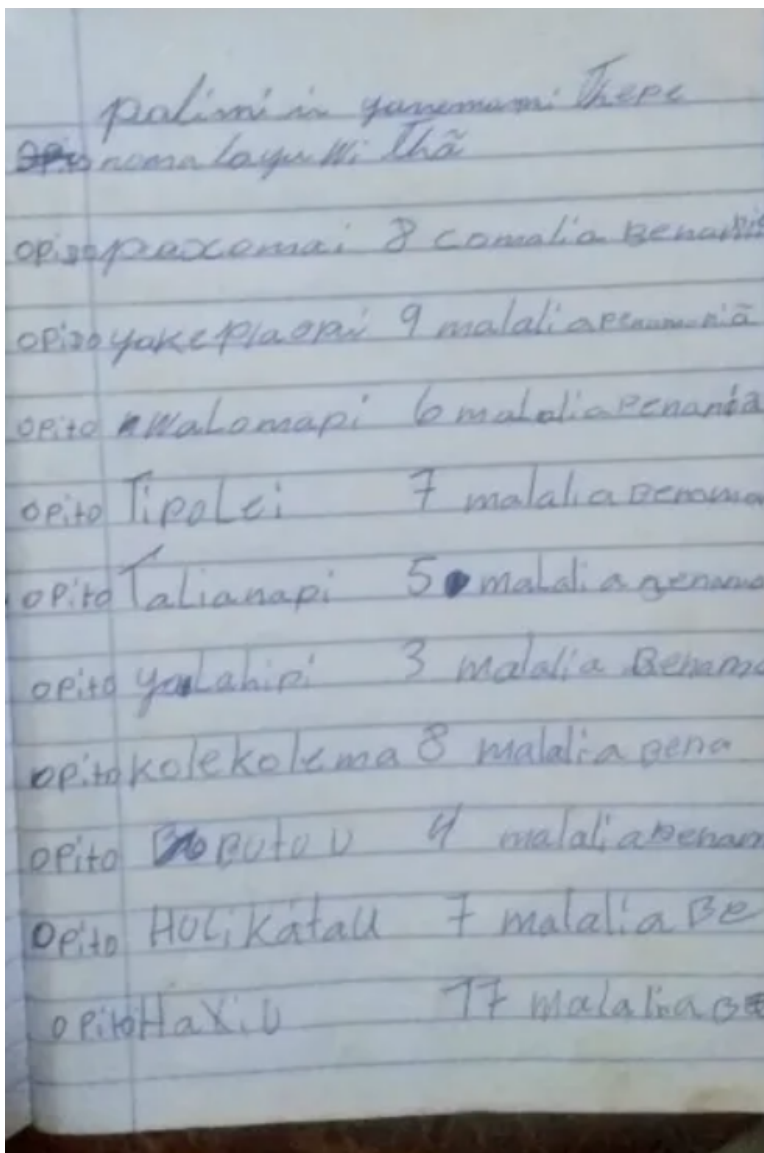 palimi iu yanomami Thepe
noma layu Wi thã
opito paxomai 8 comalia Benama
opito yakeplaopi 9 malalia penamuniã
opito Walomapi 6 malalia penania
opito Tipolei 7 malalia Benama
opito Talianapi 5 malalia genama
opito yalahipi 3 malalia Benama
opito kolekolema 8 malalia pena
opito BUTOU 4 malalia Benam
opito HOLiKátaU 7 malalia Be
opito HaXiU 17 malalia Be